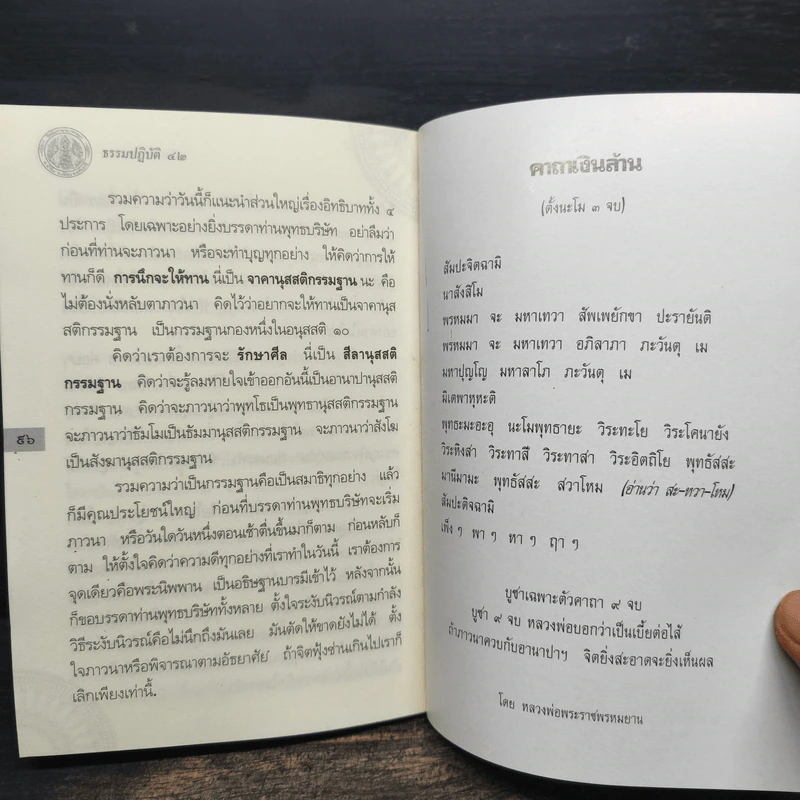 ธรรมปฏิบัติ ๔๒
รวมความว่าวันนี้ก็แนะนำส่วนใหญ่เรื่องอิทธิบาททั้ง ๔
ประการ โดยเฉพาะอย่างยิ่งบรรดาท่านพุทธบริษัท อย่าลืมว่า
ก่อนที่ท่านจะภาวนา หรือจะทำบุญทุกอย่าง ให้คิดว่าการให้
ทานก็ดี การนึกจะให้ทาน นี่เป็น จาคานุสสติกรรมฐาน นะ คือ
ไม่ต้องนั่งหลับตาภาวนา คิดไว้ว่าอยากจะให้ทานเป็นจาคานุส
สติกรรมฐาน เป็นกรรมฐานกองหนึ่งในอนุสสติ ๑๐
คิดว่าเราต้องการจะ รักษาศีล นี่เป็น สีลานุสสติ
กรรมฐาน คิดว่าจะรู้ลมหายใจเข้าออกอันนี้เป็นอานาปานุสสติ
กรรมฐาน คิดว่าจะภาวนาว่าพุทโธเป็นพุทธานุสสติกรรมฐาน
จะภาวนาว่าธัมโมเป็นธัมมานุสสติกรรมฐาน จะภาวนาว่าสังโฆ
เป็นสังฆานุสสติกรรมฐาน
รวมความว่าเป็นกรรมฐานคือเป็นสมาธิทุกอย่าง แล้ว
ก็มีคุณประโยชน์ใหญ่ ก่อนที่บรรดาท่านพุทธบริษัทจะเริ่ม
ภาวนา หรือวันใดวันหนึ่งตอนเช้าตื่นขึ้นมาก็ตาม ก่อนหลับก็
ตาม ให้ตั้งใจคิดว่าความดีทุกอย่างที่เราทำในวันนี้ เราต้องการ
จุดเดียวคือพระนิพพาน เป็นอธิษฐานบารมีเข้าไว้ หลังจากนั้น
ก็ขอบรรดาท่านพุทธบริษัททั้งหลาย ตั้งใจระงับนิวรณ์ตามกำลัง
วิธีระงับนิวรณ์คือไม่นึกถึงมันเลย มันตัดให้ขาดยังไม่ได้ ตั้ง
ใจภาวนาหรือพิจารณาตามอัธยาศัย ถ้าจิตฟุ้งซ่านเกินไปเราก็
เลิกเพียงเท่านี้.
๙๖
คาถาเงินล้าน
(ตั้งนะโม ๓ จบ)
สัมปะจิตฉามิ
นาสังสิโม
พรหมมา จะ มหาเทวา สัพเพยักขา ปะรายันติ
พรหมมา จะ มหาเทวา อภิลาภา ภะวันตุ เม
มหาปุญโญ มหาลาโภ ภะวันตุ เม
มิเตพาหุหะติ
พุทธะมะอะอุ นะโมพุทธายะ วิระทะโย วิระโคนายัง
วิระหิงสา วิระทาสี วิระทาสา วิระอิตถิโย พุทธัสสะ
มานีมามะ พุทธัสสะ สวาโหม (อ่านว่า สะ-หวา-โหม)
สัมปะติจฉามิ
เพ็ง ๆ พา ๆ หา ๆ ฤา ๆ
บูชาเฉพาะตัวคาถา ๙ จบ
บูชา ๙ จบ หลวงพ่อบอกว่าเป็นเบี้ยต่อไส้
ถ้าภาวนาควบกับอานาปาฯ จิตยิ่งสะอาดจะยิ่งเห็นผล
โดย หลวงพ่อพระราชพรหมยาน